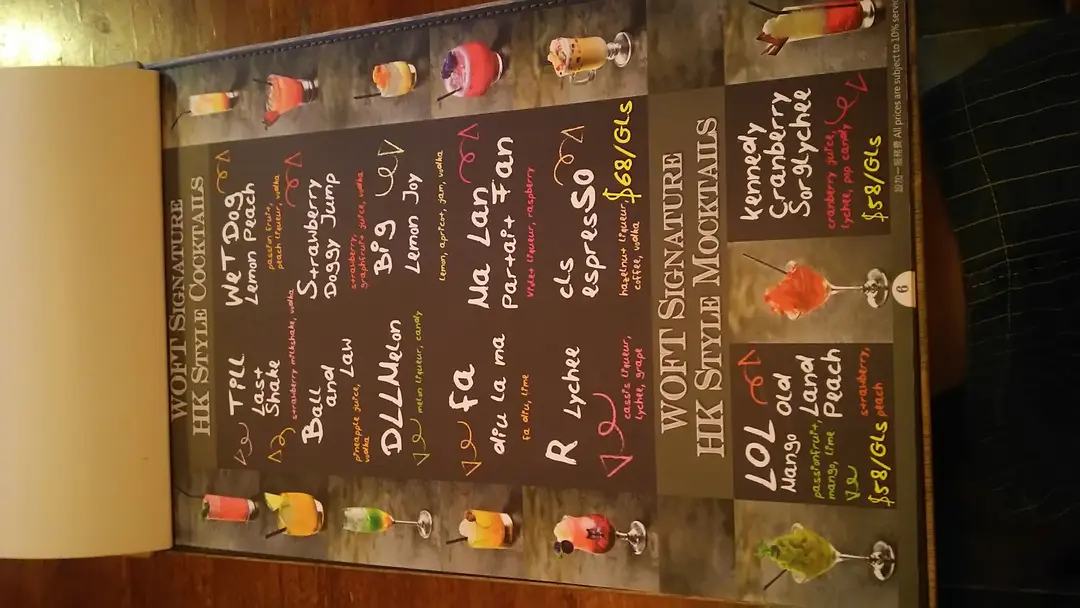 WOFT SIGNATURE
HK STYLE COCKTAILS
TiLL
Last
Shake
strawberry milkshake, vodka
Ball
and
Law
pineapple juice,
vodka
DLLMelon
melon liqueur, candy
fa
diu la ma
fa diu, lime
R Lychee
cassis liqueur,
lychee, grape
WeT Dog
Lemon Peach
passion fruit,
peach liqueur, vodka
Strawberry
Doggy Jump
strawberry,
graphfruit juice, vodka
Big
Lemon Joy
lemon, apricot, jam, vodka
Ma Lan
Partait Fan
violet liqueur, raspberry
cls
espresso
hazelnut liqueur,
coffee, vodka
$68/GLs
WOFT SIGNATURE
HK STYLE MOCKTAILS
LOL
Mango Old
Land
Peach
passionfruit, strawberry,
mango, lime peach
$58/GLs
Kennedy
Cranberry
Sorglychee
cranberry juice,
lychee, pop candy
$58/GLs
設加一服務費 All prices are subject to 10%
6